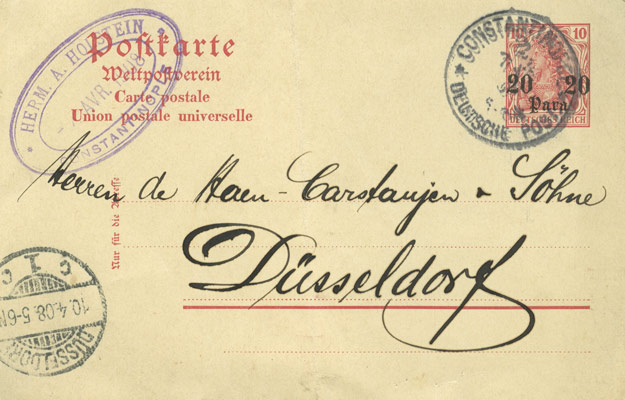 HERM. A. HOLSTEIN
AVR. 1908
CONSTANTINOPLE
Postkarte
Weltpostverein
Carte postale
Union postale universelle
CONSTANTINOPEL
DEUTSCHE POST
10 10
20 20
Para
DEUTSCHES REICH
Herren de Haen-Carstanjen & Söhne
Nur für die Adresse
Düsseldorf
c 1 c
10.4.08.5-6N
DÜSSELDORF